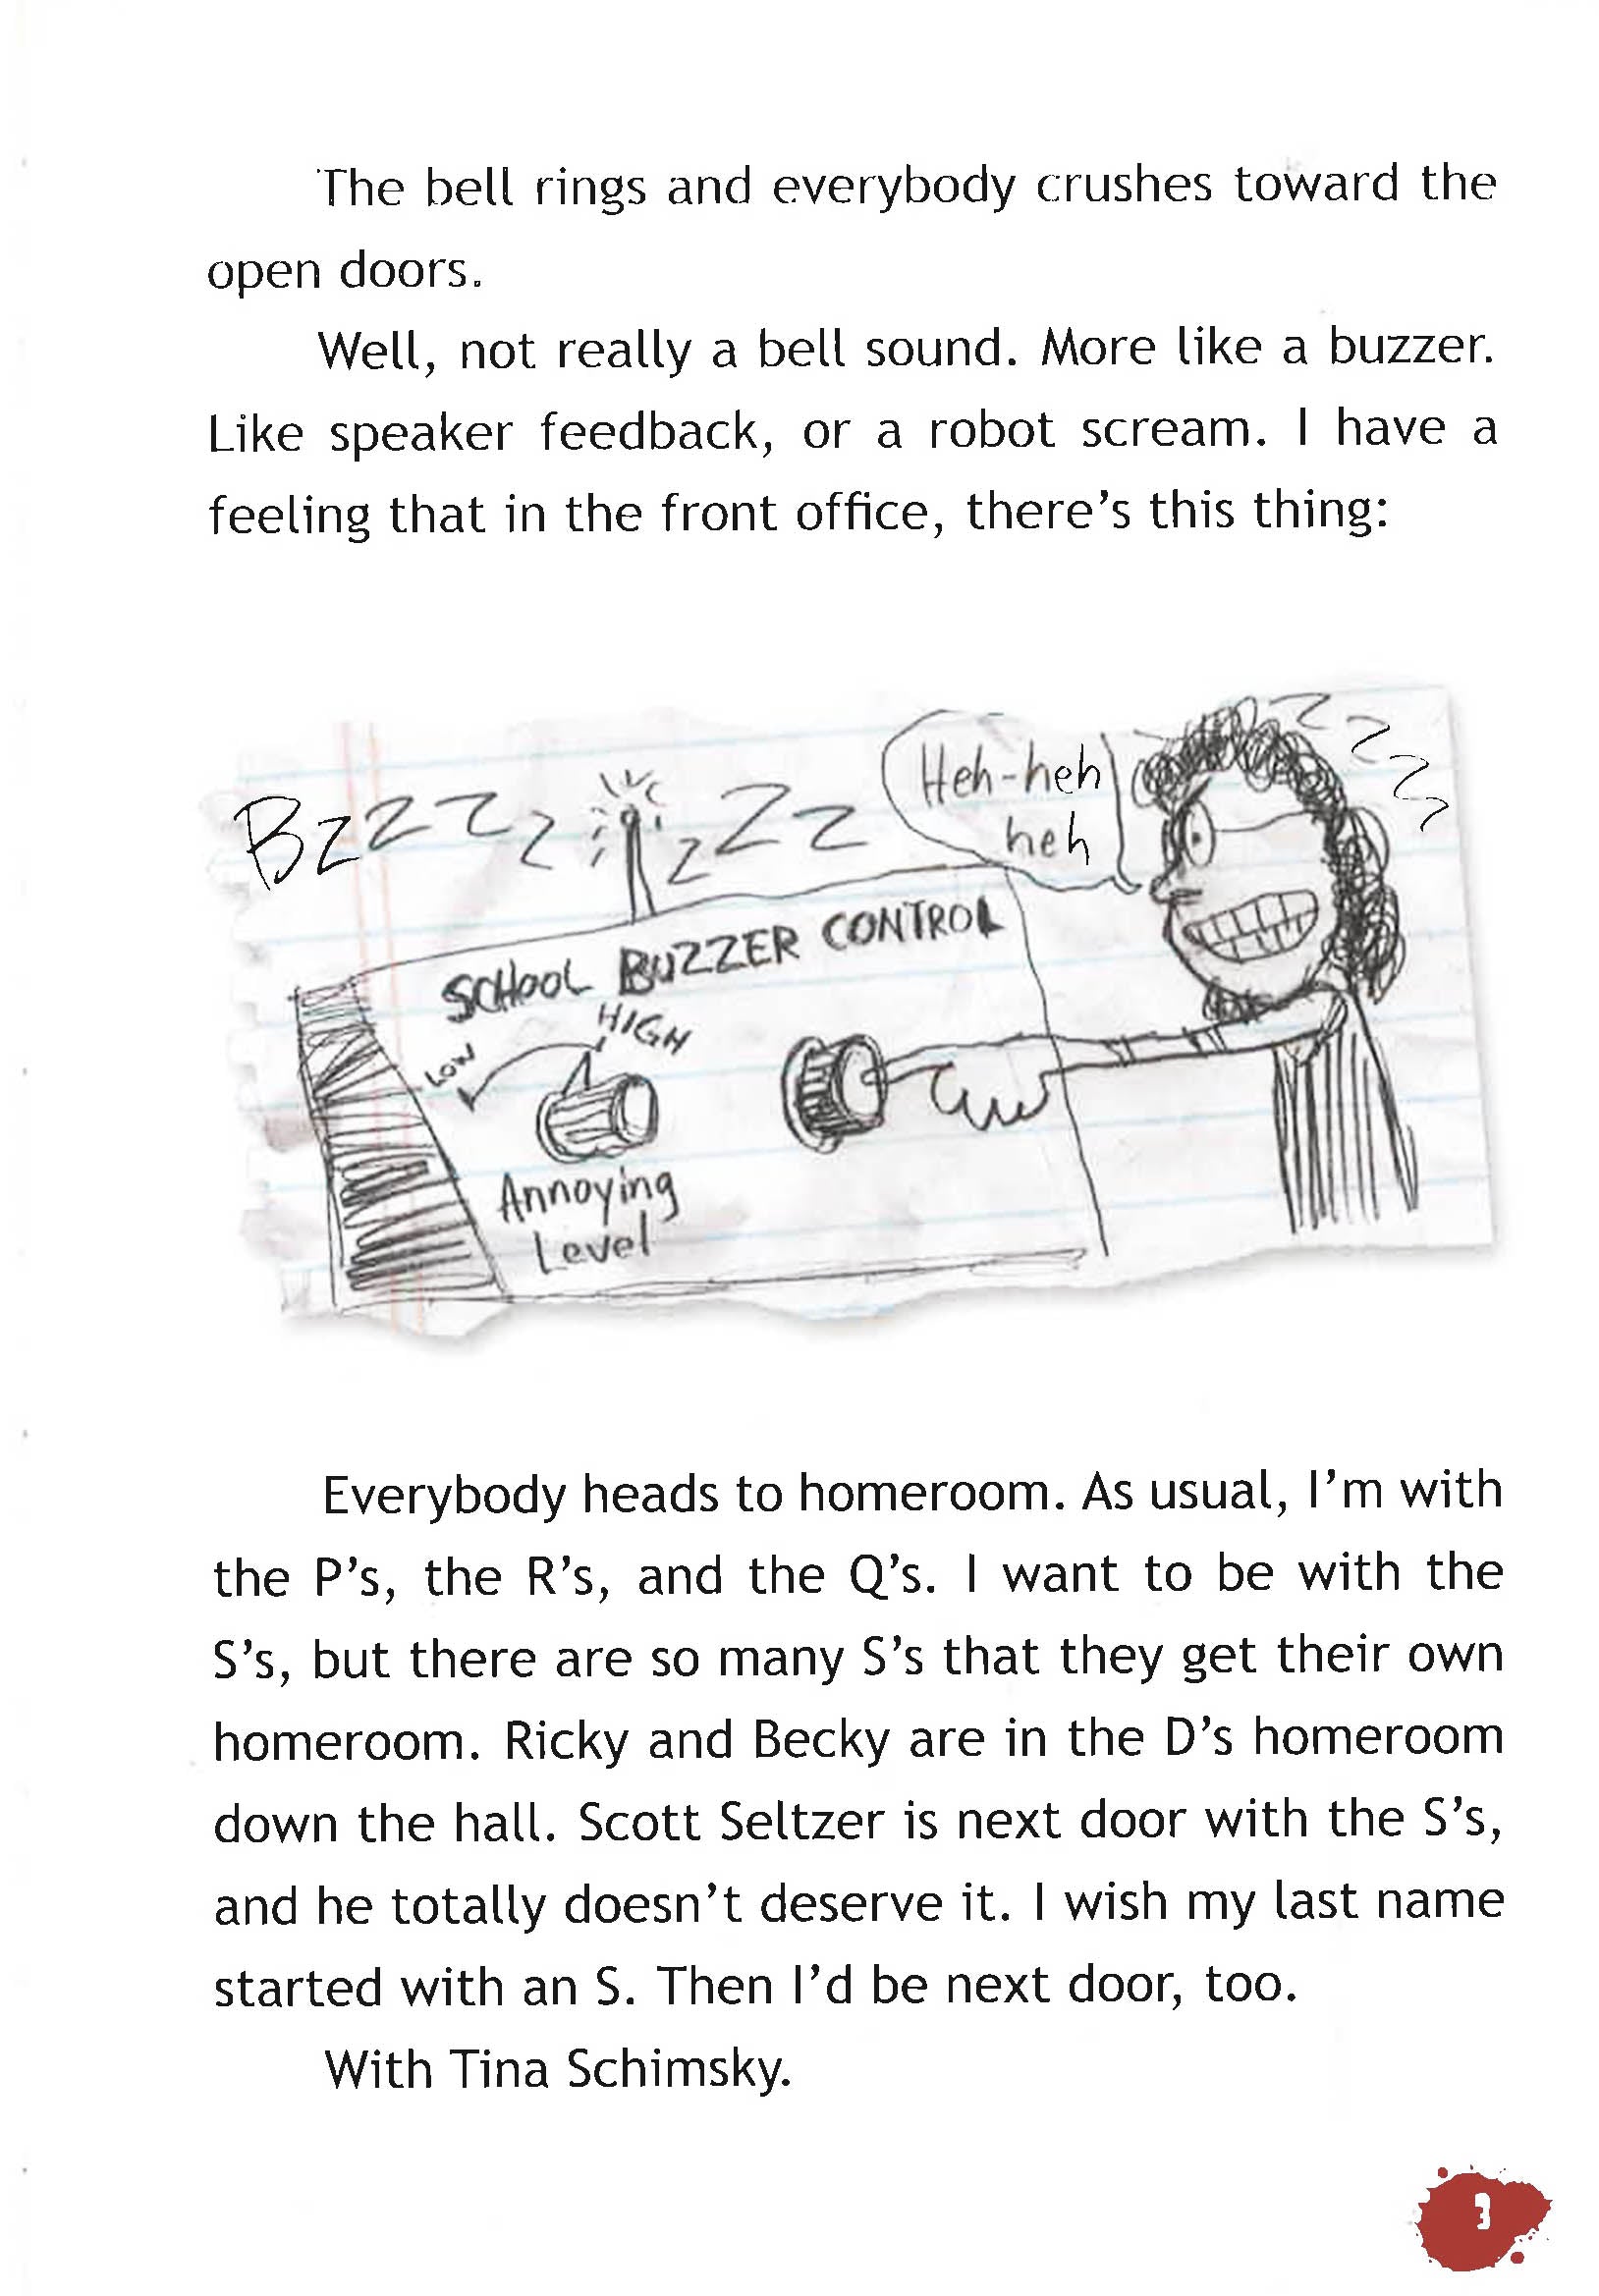 The bell rings and everybody crushes toward the
open doors.
Well, not really a bell sound. More like a buzzer.
Like speaker feedback, or a robot scream. I have a
feeling that in the front office, there's this thing:
Bzzzzz zzzz
Heh-heh
heh
zzzz
SCHOOL BUZZER CONTROL
LOW
HIGH
Annoying
Level
Everybody heads to homeroom. As usual, I'm with
the P's, the R's, and the Q's. I want to be with the
S's, but there are so many S's that they get their own
homeroom. Ricky and Becky are in the D's homeroom
down the hall. Scott Seltzer is next door with the S's,
and he totally doesn't deserve it. I wish my last name
started with an S. Then I'd be next door, too.
With Tina Schimsky.
3